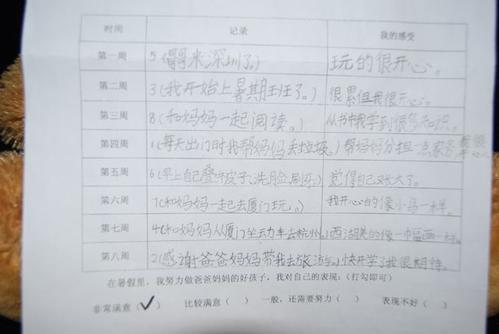 时间 记录 我的感受
第一周 5(来深圳了) 玩的很开心。
第二周 3(我开始上暑期班了。) 很累但我很开心。
第三周 8(和妈妈一起阅读。) 从书中我学到很多知识。
第四周 1(每天出门时我帮妈妈丢垃圾。) 帮妈妈分担一点家务
第五周 6(早上自己叠被子、洗脸、刷牙。) 觉得自己长大了。
第六周 7(和妈妈一起去厦门玩。) 我开心的像小马一样。
第七周 4(和妈妈从厦门坐动车去杭州。) 西湖美的像一幅画一样。
第八周 2(感谢爸爸妈妈带我去旅游。) 快开学了我很期待。
在暑假里,我努力做爸爸妈妈的好孩子,我对自己的表现:(打勾即可)
非常满意(✓) 比较满意( ) 一般,还需要努力( ) 表现不好( )